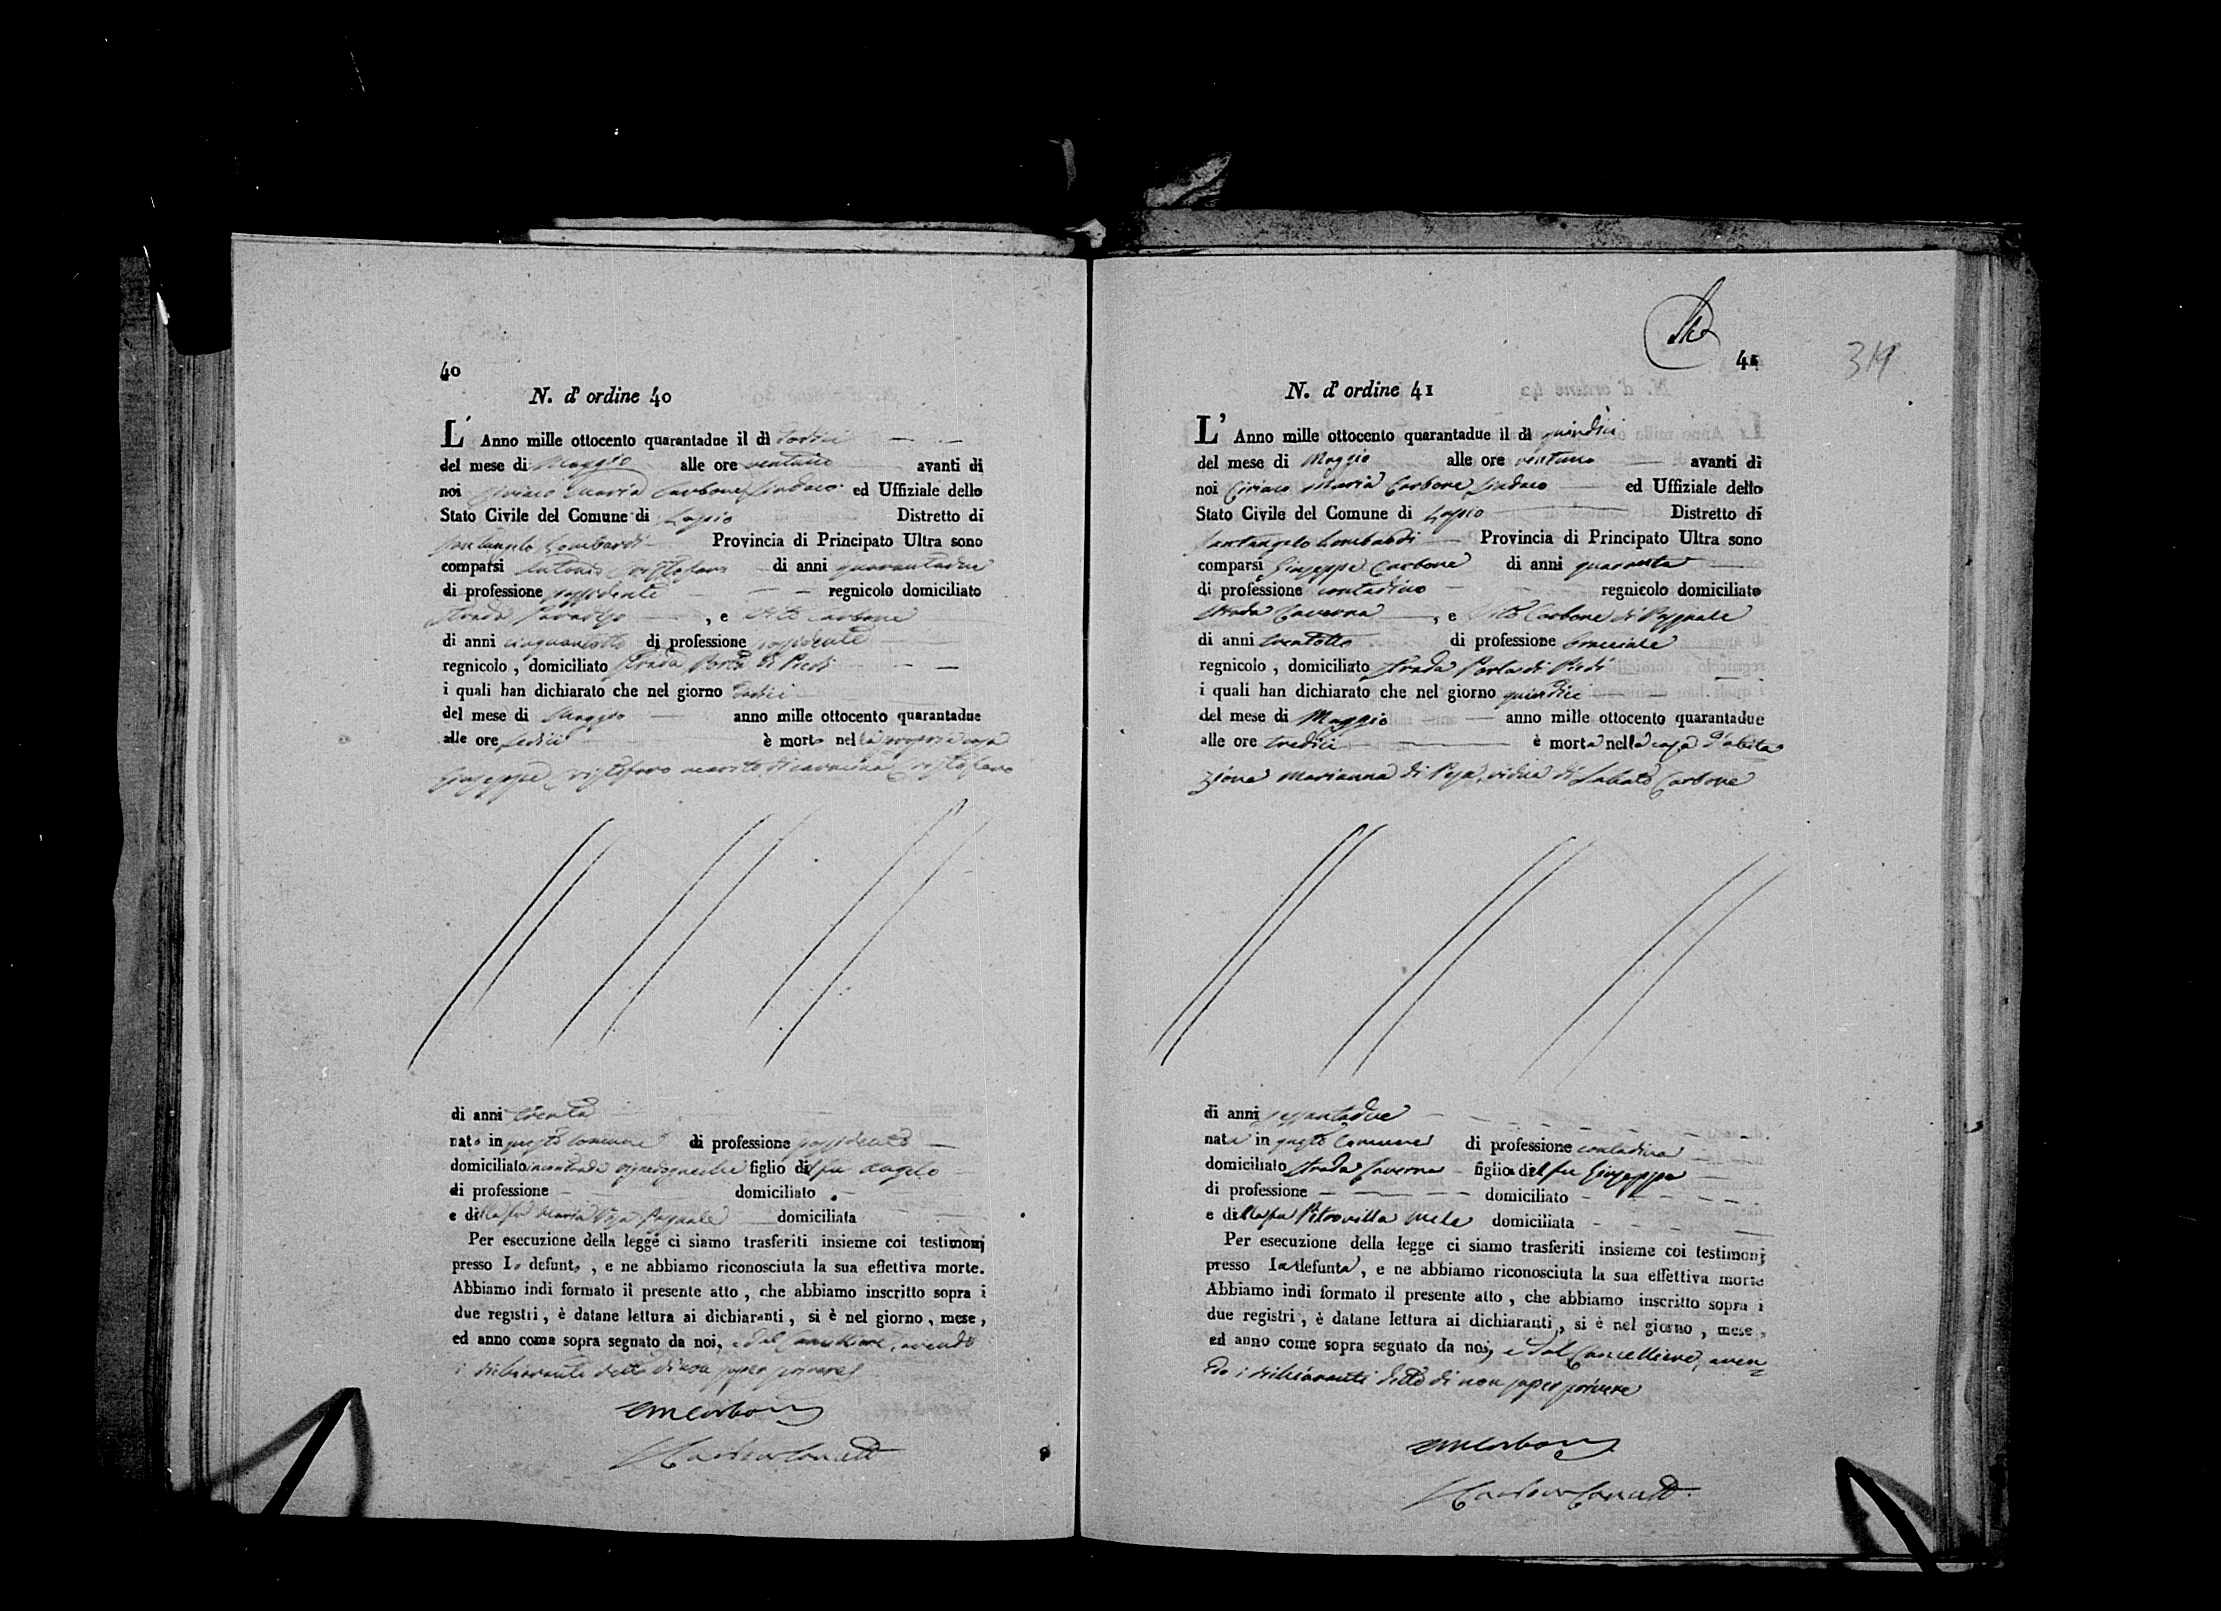 40
N. d' ordine 40
L' Anno mille ottocento quarantadue il dì
del mese di Maggio alle ore ventuno avanti di
noi Ciriaco Maria Carbone Sindaco ed Uffiziale dello
Stato Civile del Comune di Lapio Distretto di
Santangelo Lombardi Provincia di Principato Ultra sono
comparsi Antonio Cristofaro di anni quarantadue
di professione possidente regnicolo domiciliato
strada , e Vito Carbone
di anni di professione possidente
regnicolo , domiciliato strada Porta di Piedi
i quali han dichiarato che nel giorno
del mese di Maggio anno mille ottocento quarantadue
alle ore sedici è morto nella propria casa
Giuseppe Cristofaro marito di Cristofaro
di anni trenta
nato in questo Comune di professione possidente
domiciliato figlio del fu Angelo
di professione domiciliato
e della fu Maria domiciliata
Per esecuzione della legge ci siamo trasferiti insieme coi testimonj
presso Lo defunto , e ne abbiamo riconosciuta la sua effettiva morte.
Abbiamo indi formato il presente atto , che abbiamo inscritto sopra i
due registri , è datane lettura ai dichiaranti , si è nel giorno , mese ,
ed anno come sopra segnato da noi, e dal Cancelliere, avendo
i dichiaranti detto di non saper scrivere
CM Carbone
41
319
N. d' ordine 41
L' Anno mille ottocento quarantadue il dì quindici
del mese di Maggio alle ore ventuno avanti di
noi Ciriaco Maria Carbone Sindaco ed Uffiziale dello
Stato Civile del Comune di Lapio Distretto di
Santangelo Lombardi Provincia di Principato Ultra sono
comparsi Giuseppe Carbone di anni quaranta
di professione contadino regnicolo domiciliato
strada Caverna , e Vito Carbone di Pasquale
di anni trentotto di professione bracciale
regnicolo , domiciliato strada Porta di Piedi
i quali han dichiarato che nel giorno quindici
del mese di Maggio anno mille ottocento quarantadue
alle ore tredici è morta nella casa d'abita
zione Marianna di Pisa, vidua di Sabato Carbone
di anni sessantadue
nata in questo Comune di professione contadina
domiciliato strada Caverna figlia del fu Giuseppe
di professione domiciliato
e della fu Petronilla Mele domiciliata
Per esecuzione della legge ci siamo trasferiti insieme coi testimonj
presso La defunta , e ne abbiamo riconosciuta la sua effettiva morte
Abbiamo indi formato il presente atto , che abbiamo inscritto sopra i
due registri , è datane lettura ai dichiaranti , si è nel giorno , mese ,
ed anno come sopra segnato da noi, e dal Cancelliere, aven
do i dichiaranti detto di non saper scrivere
CM Carbone